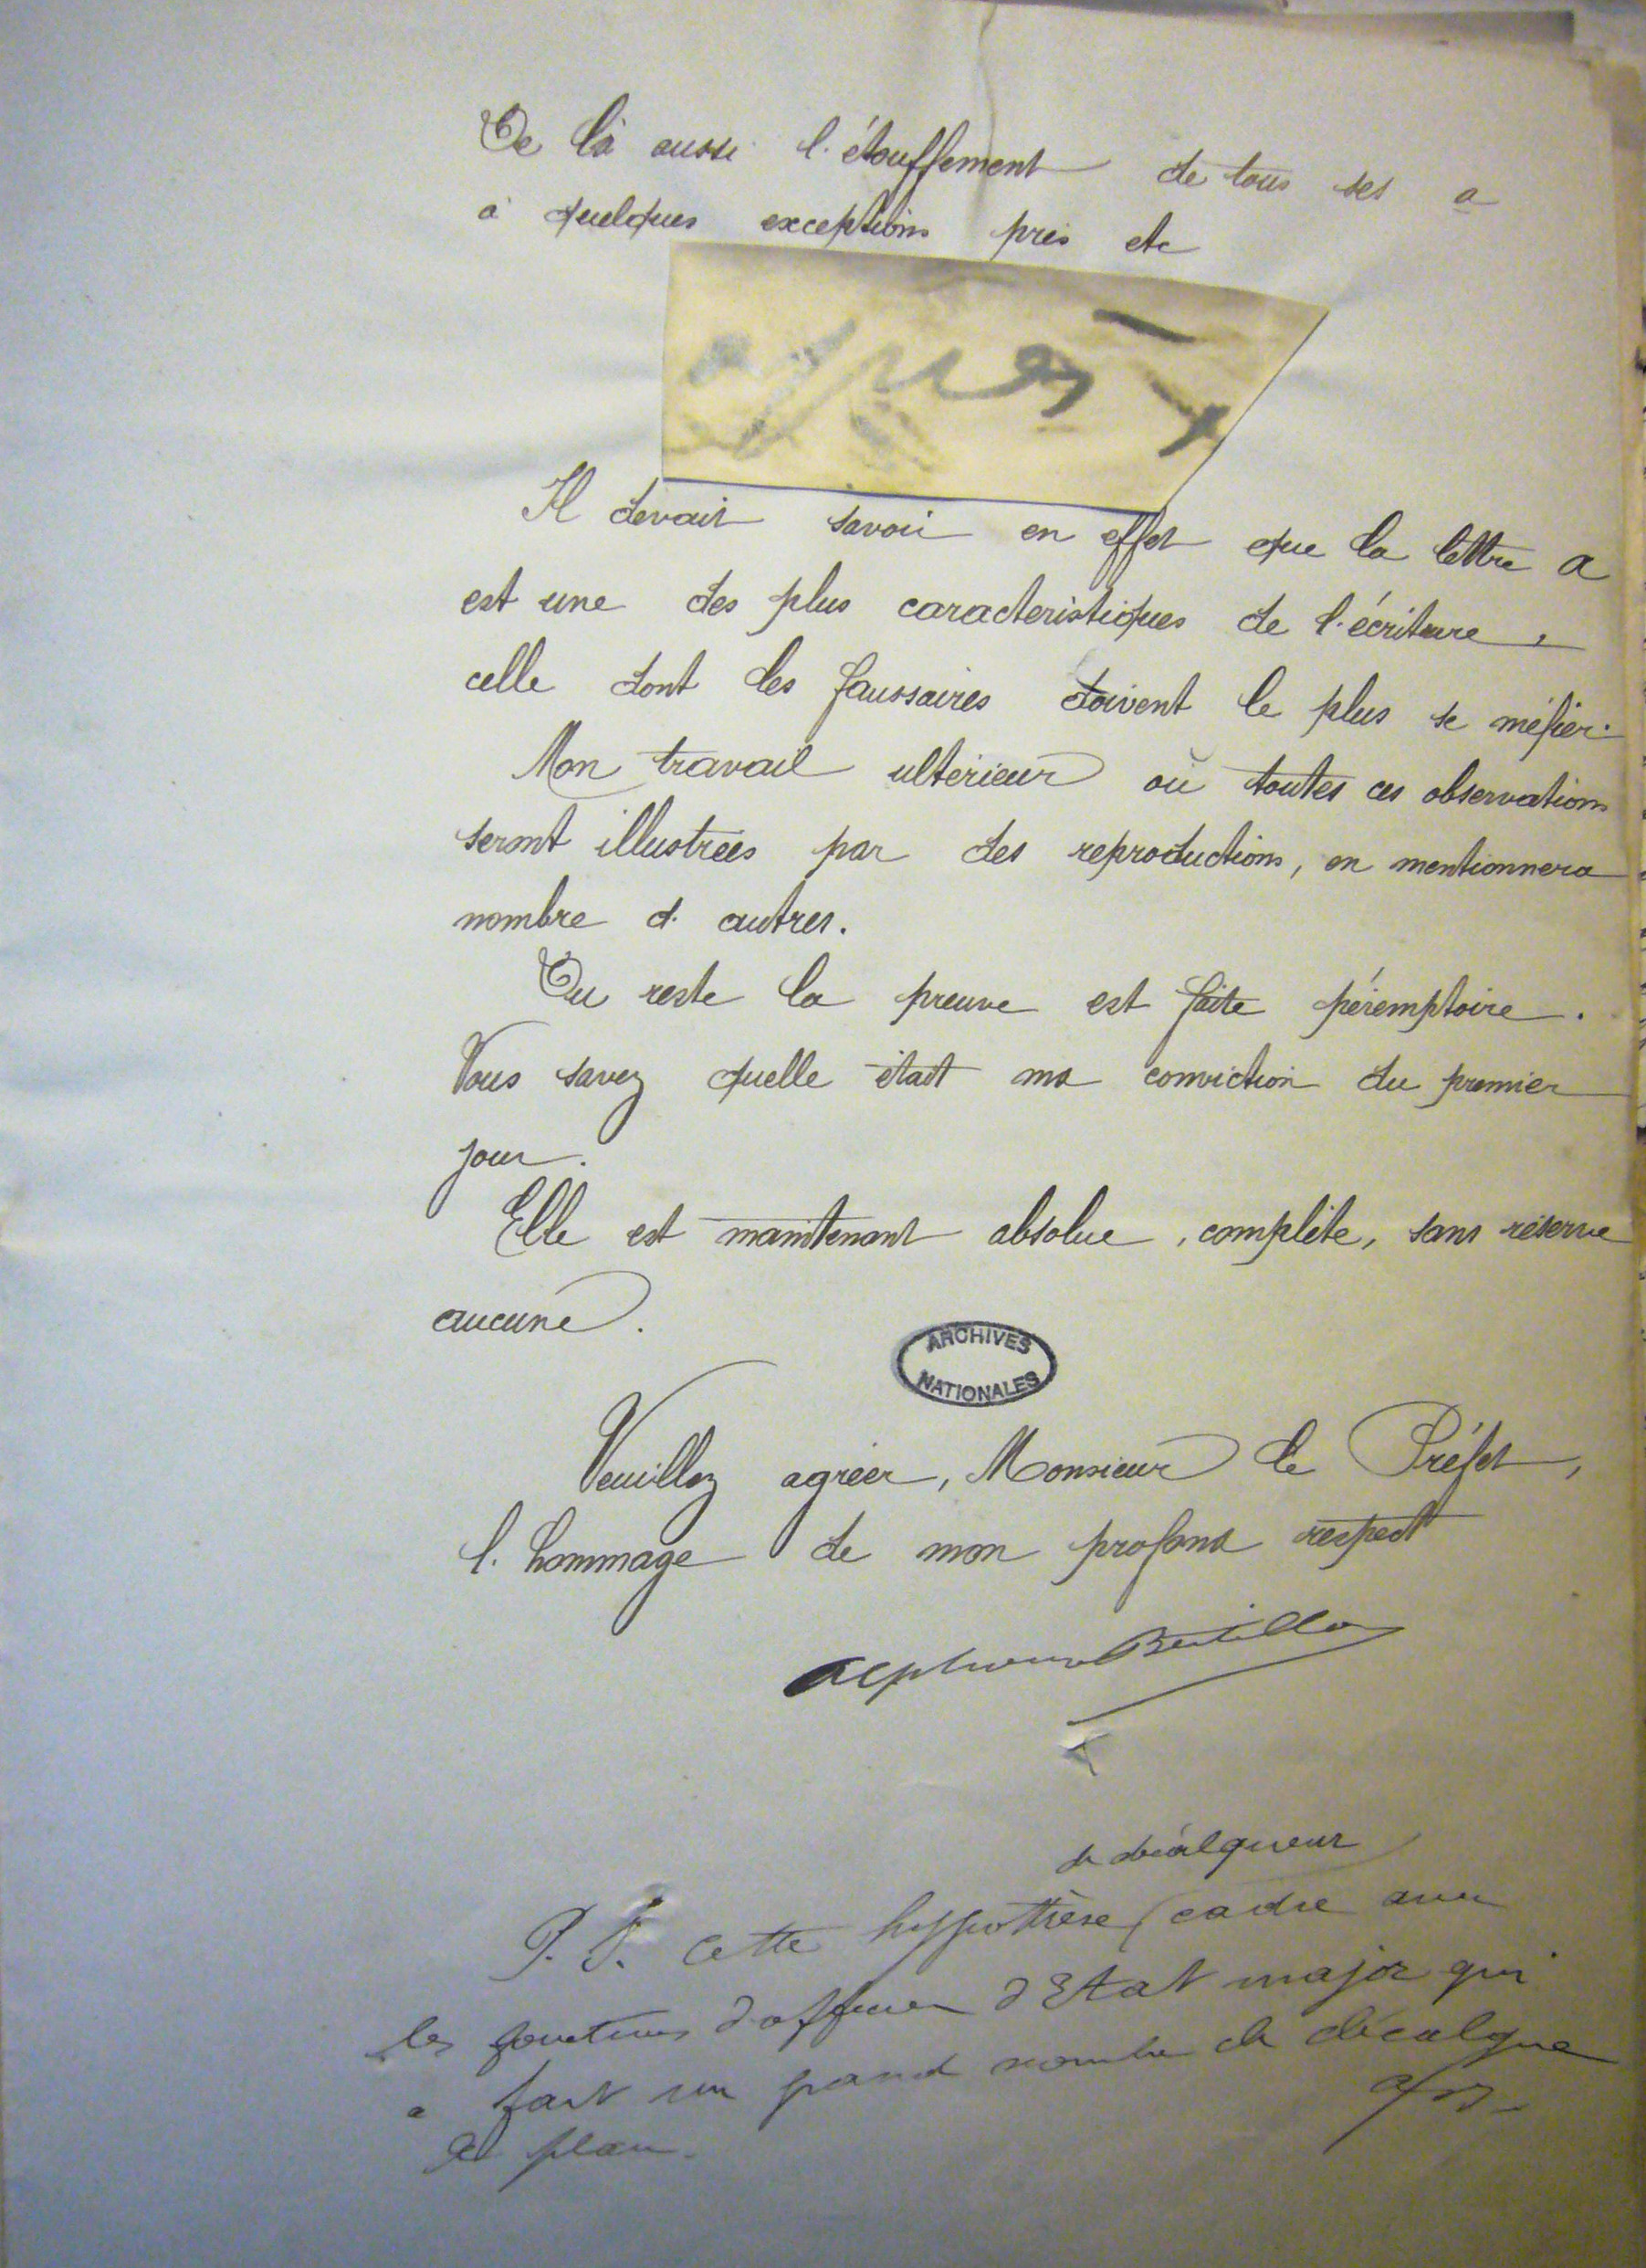 De là aussi l'étouffement de tous ses a
à quelques exceptions près etc
Il devait savoir en effet que la lettre a
est une des plus caracteristiques de l'écriture,
celle dont les faussaires doivent le plus se méfier.
Mon travail ultérieur où toutes ces observations
seront illustrées par des reproductions, en mentionnera
nombre d'autres.
Du reste la preuve est faite péremptoire.
Vous savez quelle était ma conviction du premier
jour.
Elle est maintenant absolue, complète, sans réserve
aucune.
ARCHIVES
NATIONALES
Veuillez agréer, Monsieur le Préfet,
l'hommage de mon profond respect
Alphonse Bertillon
de décalqueur
P.S. Cette hypothèse cadre avec
les fonctions d'officier d'Etat major qui
a fait un grand nombre de décalque
de plan.
AB